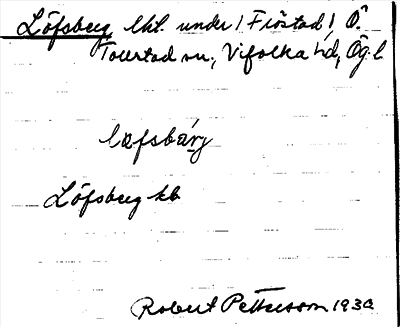 Löfsberg lht. under / Fröstad / Ö.
Tolrstad sn, Vifolka hd, Ög. l
læfsbärj
Löfsberg kb
Robert Pettersson 1930